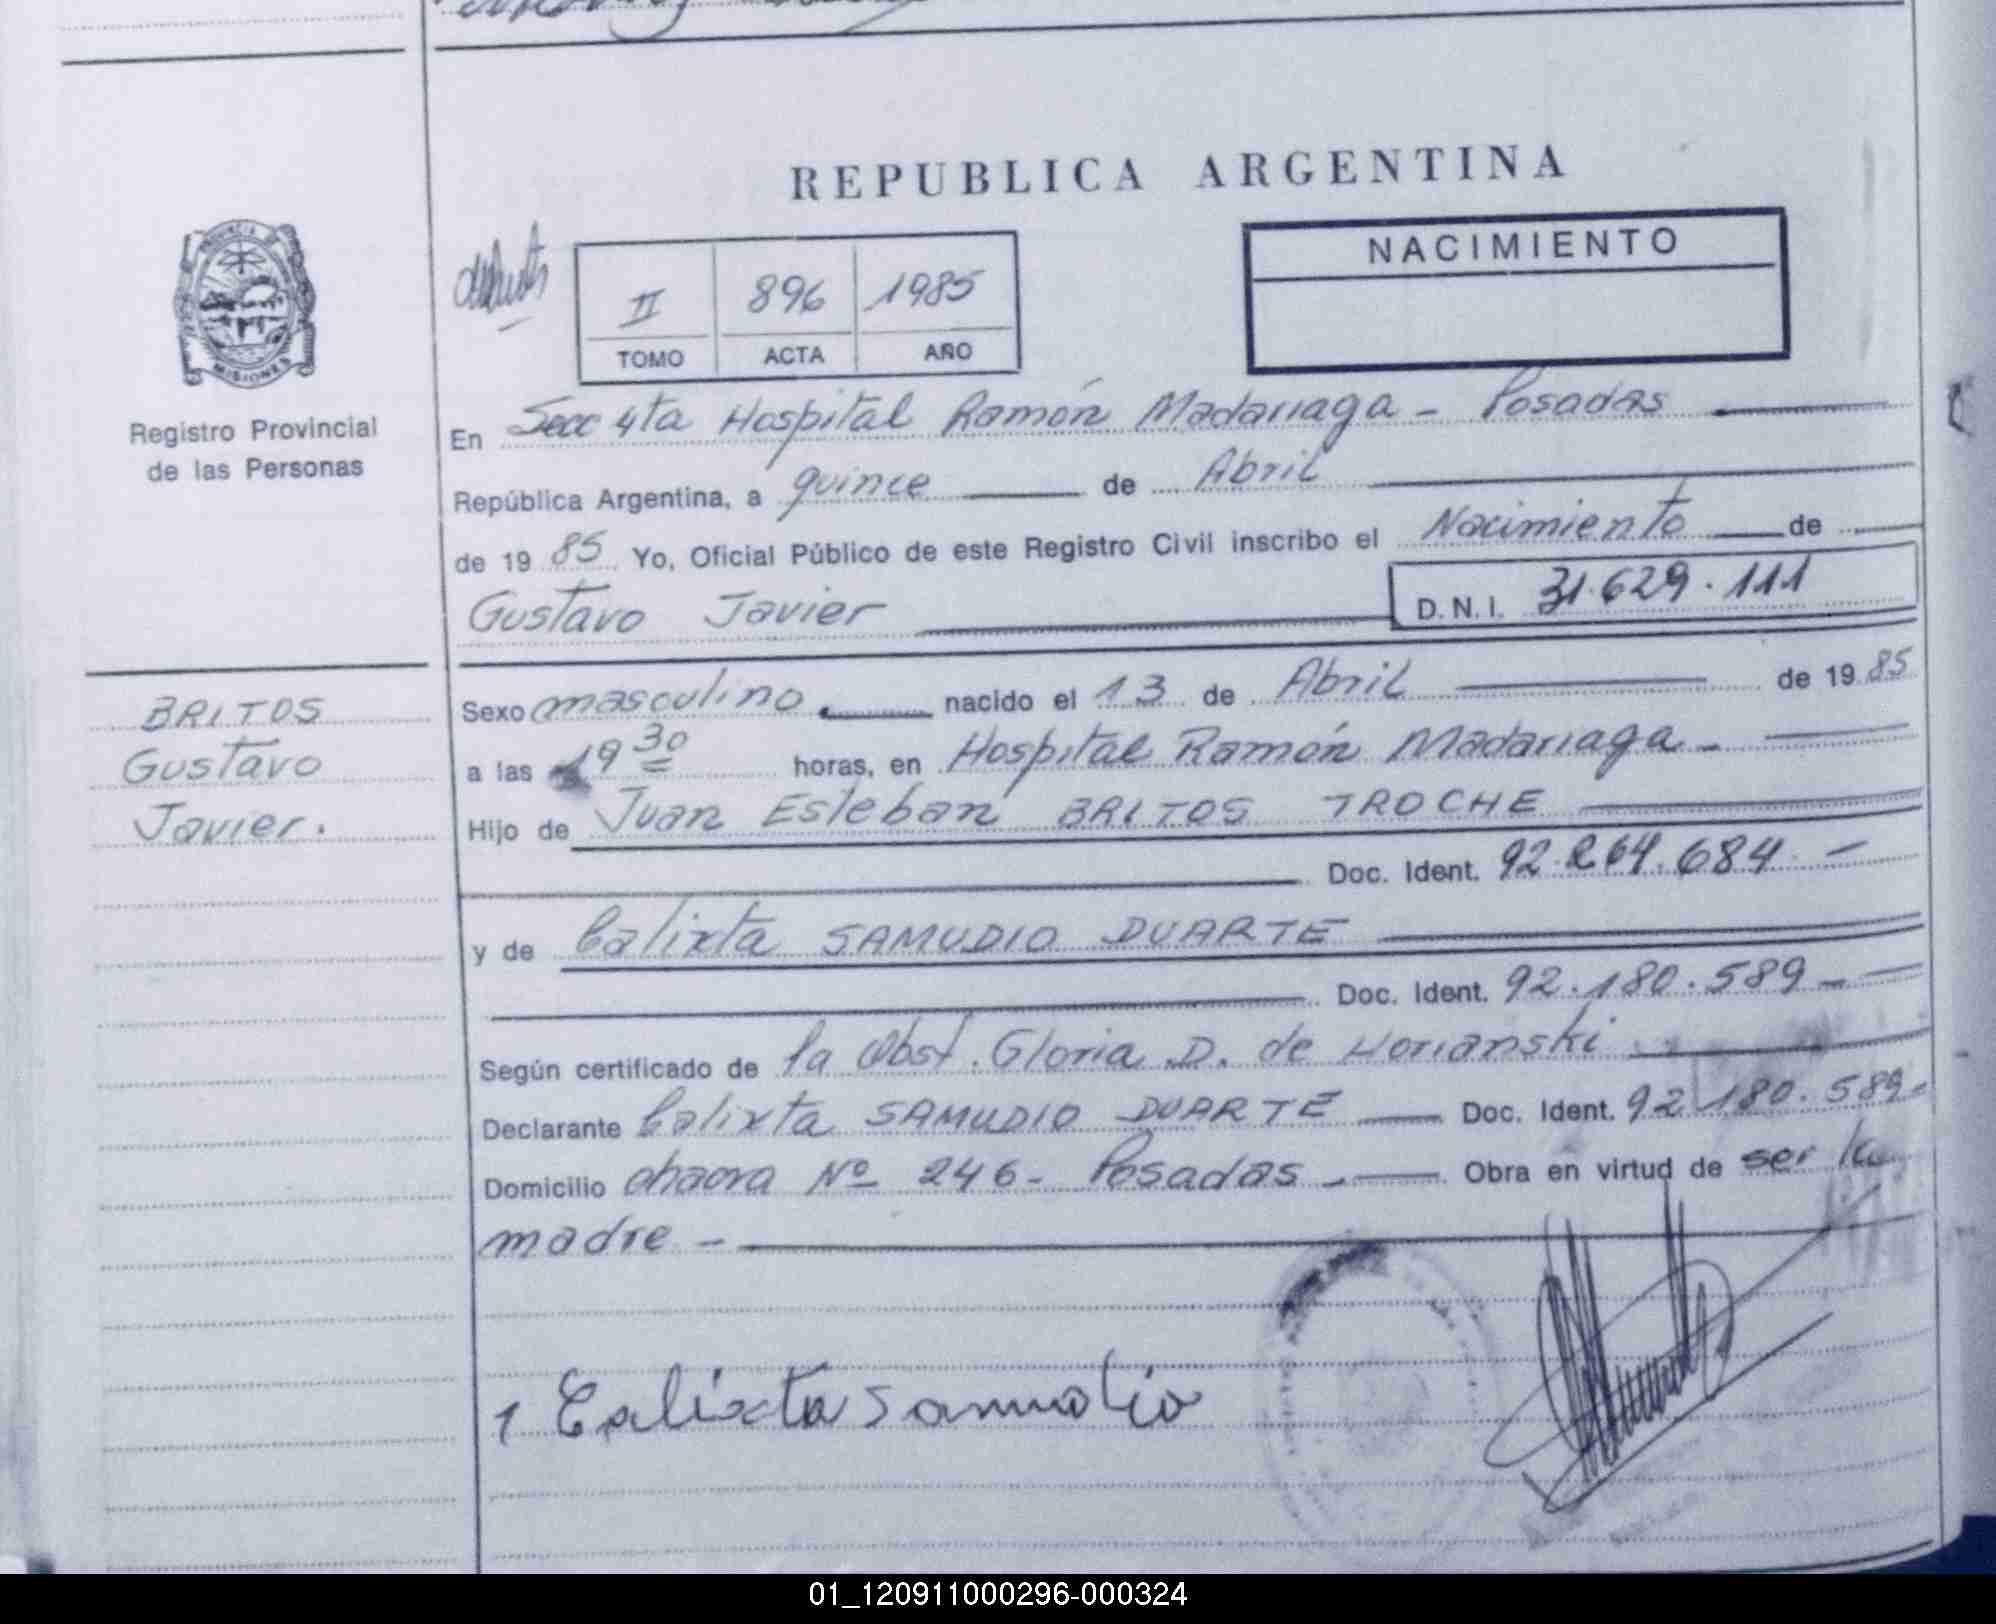 REPUBLICA ARGENTINA
NACIMIENTO
II 896 1985
TOMO ACTA AÑO
PROVINCIA DE
MISIONES
Registro Provincial
de las Personas
En Secc 4ta Hospital Ramón Madariaga - Posadas
República Argentina, a quince de Abril
de 19 85 Yo, Oficial Público de este Registro Civil inscribo el Nacimiento de
Gustavo Javier D.N.I. 31.629.111
BRITOS
Gustavo
Javier.
Sexo masculino. nacido el 13 de Abril de 19 85
a las 19 30 horas, en Hospital Ramón Madariaga -
Hijo de Juan Esteban BRITOS TROCHE
Doc. Ident. 92.264.684 -
y de Calixta SAMUDIO DUARTE
Doc. Ident. 92.180.589 -
Según certificado de la Obst. Gloria D. de Horianski
Declarante Calixta SAMUDIO DUARTE Doc. Ident. 92.180.589 -
Domicilio chacra Nº 246 - Posadas - Obra en virtud de ser la
madre -
1 Calixta Samudio
01_120911000296-000324